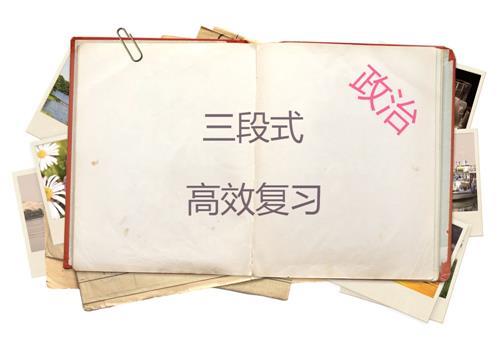 政治
三段式
高效复习